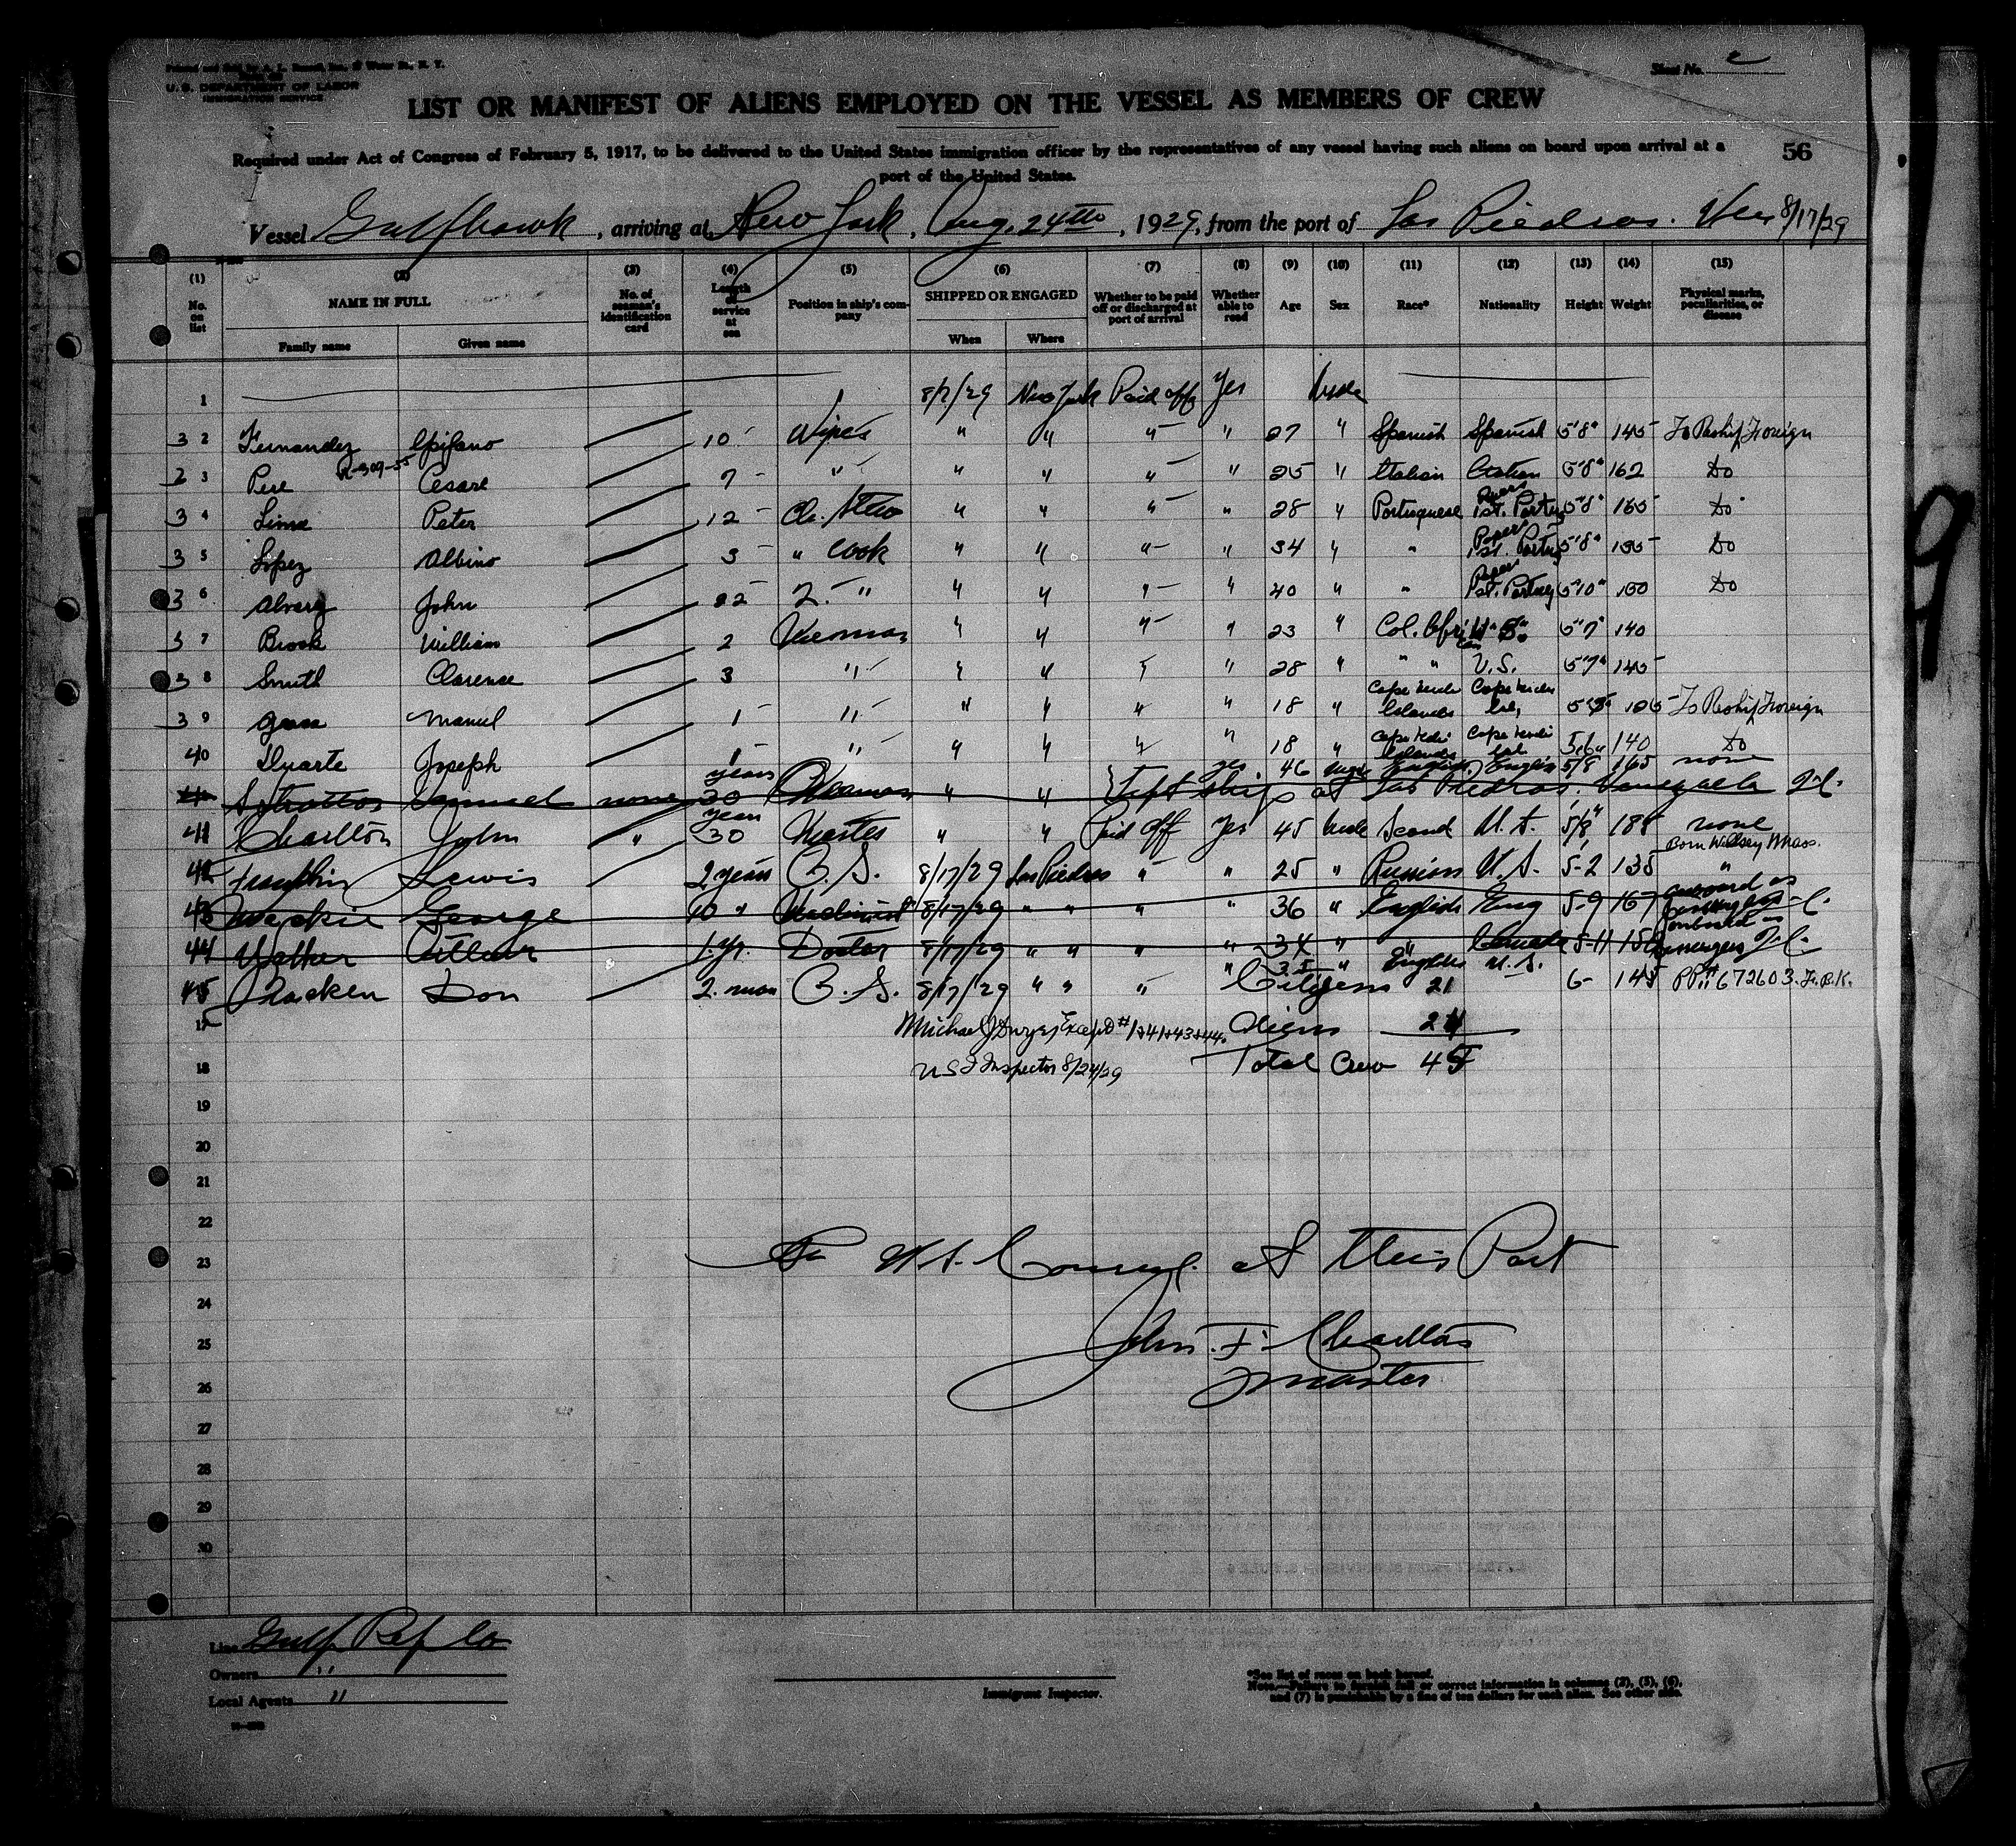 Sheet No. 2
U. S. DEPARTMENT OF LABOR
IMMIGRATION SERVICE
LIST OR MANIFEST OF ALIENS EMPLOYED ON THE VESSEL AS MEMBERS OF CREW
Required under Act of Congress of February 5, 1917, to be delivered to the United States immigration officer by the representatives of any vessel having such aliens on board upon arrival at a
port of the United States.
56
Vessel Gulfhawk, arriving at New York, Aug. 24th, 1929, from the port of Las Piedras. Ven 8/17/29
(1) (2) (3) (4) (5) (6) (7) (8) (9) (10) (11) (12) (13) (14) (15)
No. on list NAME IN FULL No. of seaman's identification card Length of service at sea Position in ship's company SHIPPED OR ENGAGED Whether to be paid off or discharged at port of arrival Whether able to read Age Sex Race* Nationality Height Weight Physical marks, peculiarities, or disease
Family name Given name When Where
1 8/2/29 New York Paid off Yes Male
3 2 Fernandez Epifano 10 Wiper " " " " 27 " Spanish Spanish 5'8" 145 To Reship Foreign
3 Cesare R-309-55 7 " " " " " 25 " Italian Italian 5'8" 162 Do
3 4 Lima Peter 12 Ch. Stew " " " " 28 " Portuguese 1st. Papers Portug 5'8" 165 Do
3 5 Lopez Albino 3 " Cook " " " " 34 " " 1st. Papers Portug 5'8" 135 Do
3 6 Alverz John 22 2. " " " " " 40 " " 1st. Papers Portug 5'10" 150 Do
3 7 Brook William 2 Messman " " " " 23 " Col. African U.S. 5'7" 140
3 8 Smith Clarence 3 " " " " " 28 " " " U.S. 5'7" 145
3 9 Manuel 1 " " " " " 18 " Cape Verde Islands Cape Verde Isl, To Reship Foreign
40 Duarte Joseph 1 " " " " " 18 " Cape Verde Islands Cape Verde Isl 5'6" 140 Do
Samuel none 30 years " " yes 46 Male English English 5/8 165 none
Left ship at Las Piedras, Venezuela
41 Charlton John " 30 year Master " " Paid Off Yes 45 Male Scand U.S. 5/8" 188 none
42 Franklin Lewis 2 years O.S. 8/17/29 Las Piedras " " 25 " Russian U.S. 5-2 135 "
43 Mackie George 10 " Machinist 8/17/29 " " " " 36 " English Eng 5-9 167
44 Walker Arthur 1. yr. Doctor 8/17/29 " " " " 34 " " Canada 5-11
45 Don 2. mos O.S. 8/17/29 " " " " 35 " English U.S. 6- 145 PP# 672603
Citizens 21
Michael J Except #1+41+43+44. Aliens 24
U S I Inspector 8/24/29 Total Crew 45
17
18
19
20
21
22
23 No U.S. Consul. at this Port
24
25 John. F. Charlton
26 Master
27
28
29
30
Line Gulf Ref Co
Owners "
Local Agents "
Immigrant Inspector.
*See list of races on back hereof.
Note.—Failure to furnish full or correct information in columns (2), (5), (6),
and (7) is punishable by a fine of ten dollars for each alien. See other side.
9